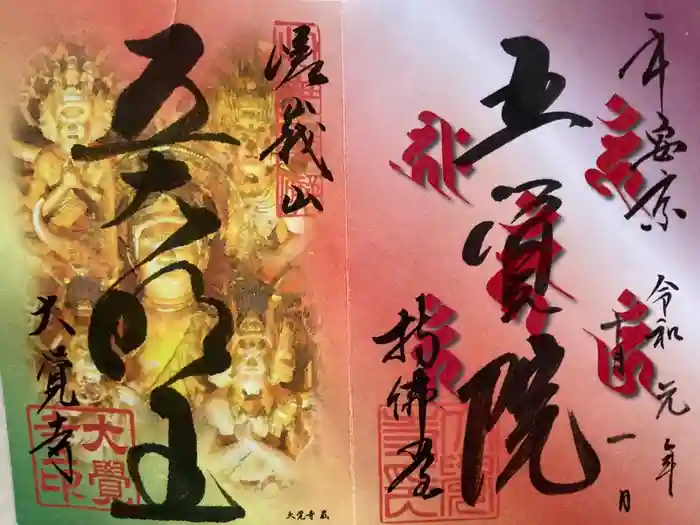 平安京
五覺院
持佛堂
令和元年
十一月一日
嵯峨山
五大明王
大覚寺
大覺寺印
大覚寺 蔵